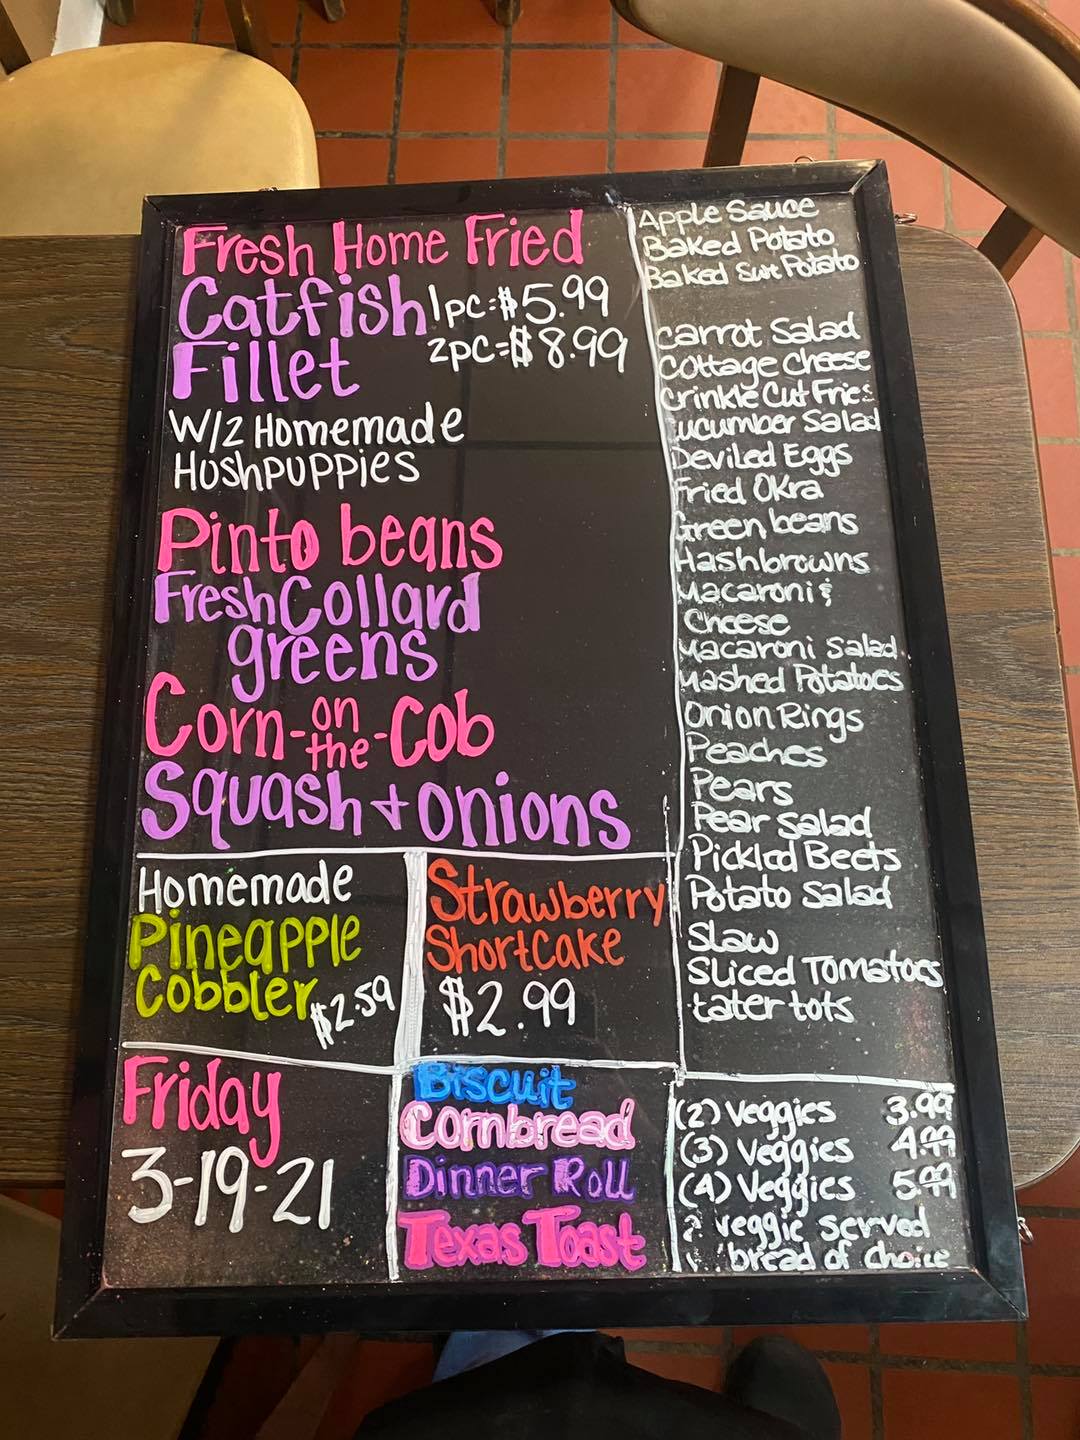 Fresh Home Fried
Catfish 1pc=$5.99
Fillet 2pc=$8.99
W/2 Homemade
Hushpuppies
Pinto beans
Fresh Collard
greens
Corn-on-the-Cob
Squash + onions
Homemade
Pineapple
Cobbler $2.59
Strawberry
Shortcake
$2.99
Friday
3-19-21
Biscuit
Cornbread
Dinner Roll
Texas Toast
Apple Sauce
Baked Potato
Baked Swt Potato
Carrot Salad
Cottage Cheese
Crinkle Cut Fries
Cucumber Salad
Deviled Eggs
Fried Okra
Green beans
Hashbrowns
Macaroni &
Cheese
Macaroni Salad
Mashed Potatoes
Onion Rings
Peaches
Pears
Pear Salad
Pickled Beets
Potato Salad
Slaw
Sliced Tomatoes
tater tots
(2) Veggies 3.99
(3) Veggies 4.99
(4) Veggies 5.99
veggie served
bread of choice